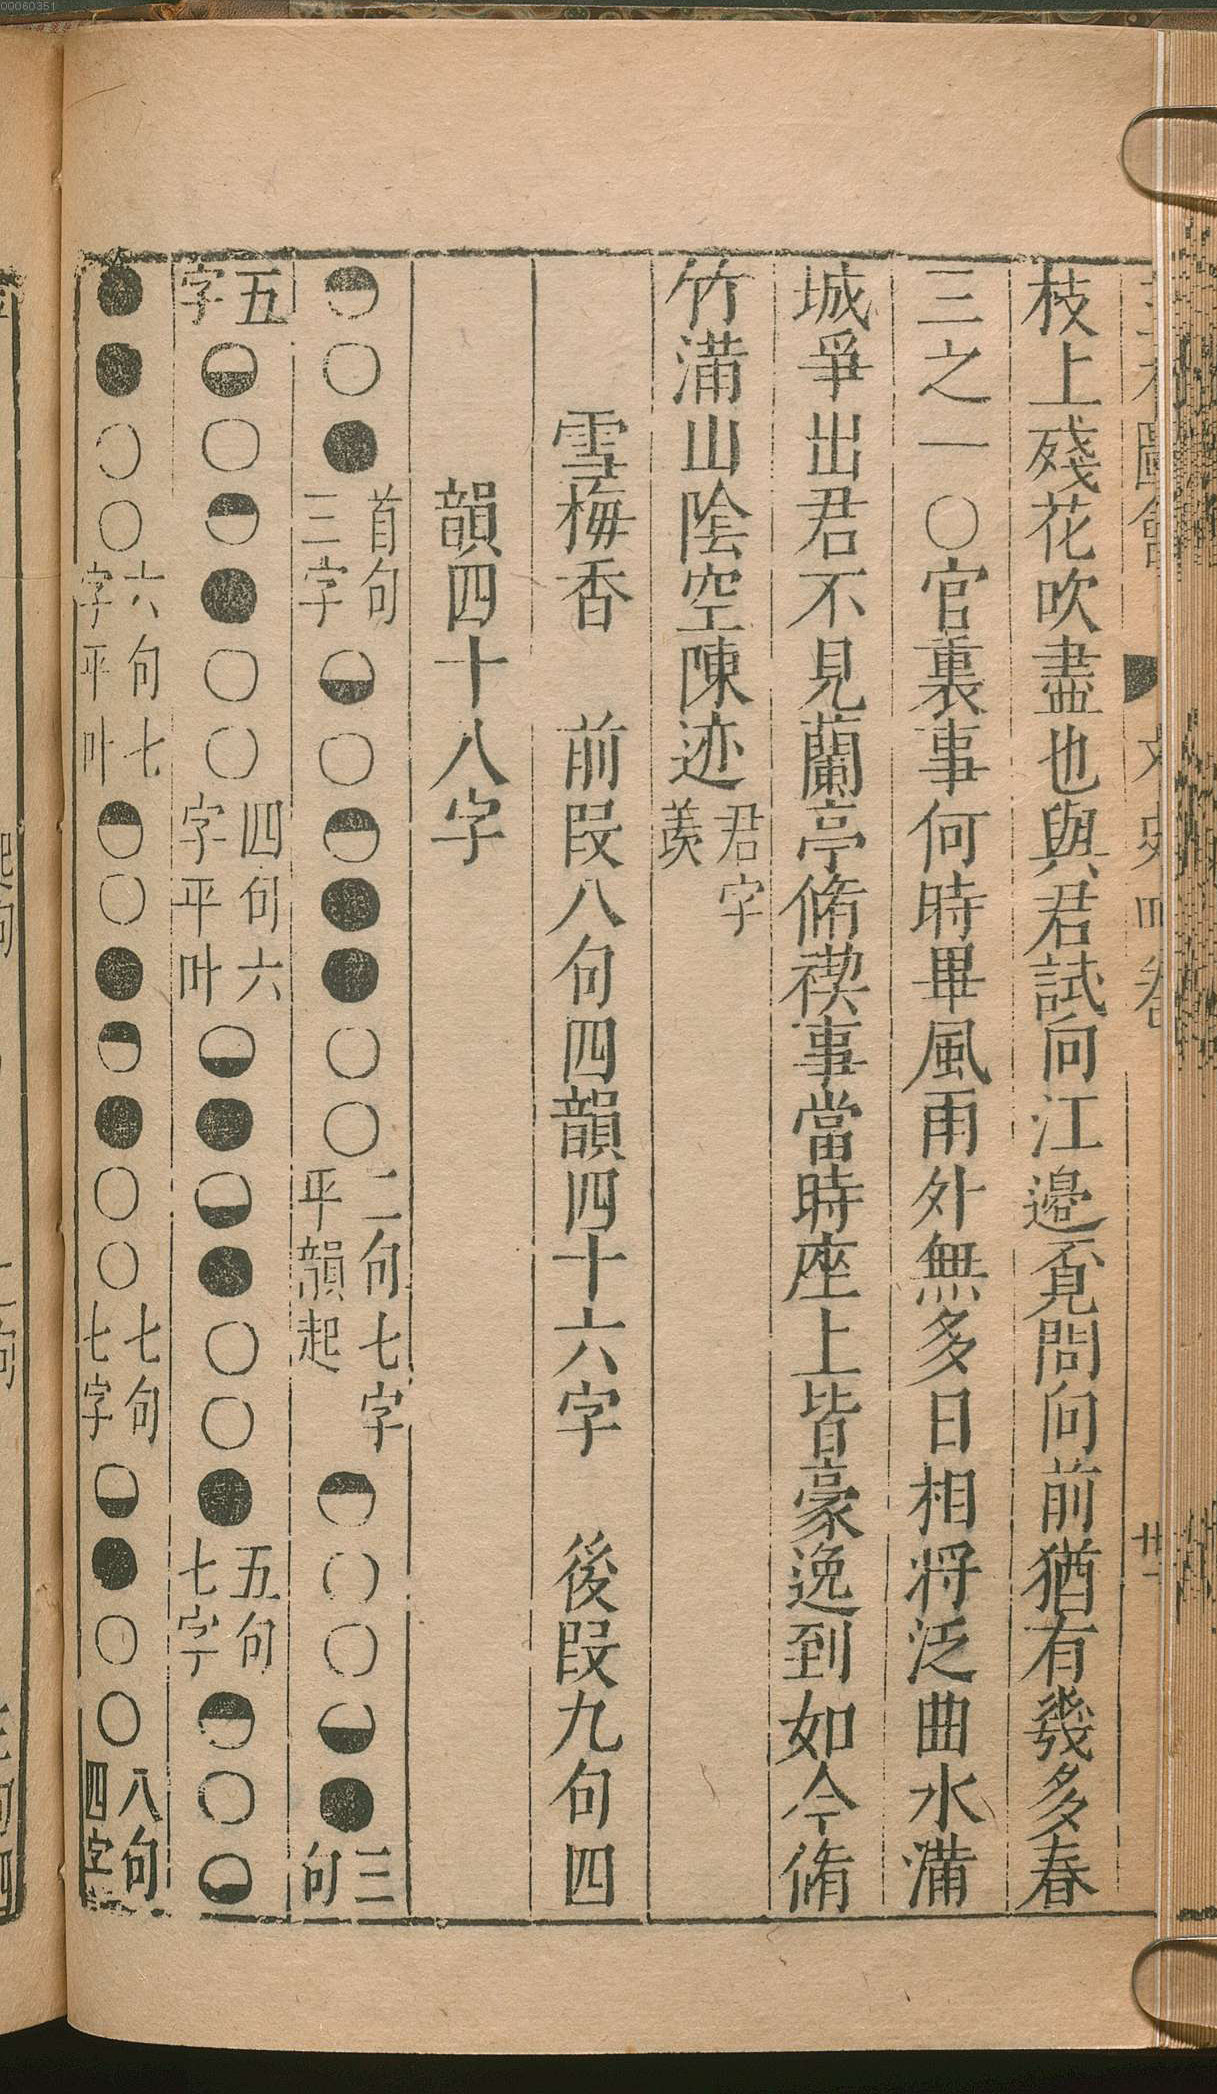 00060351
枝上殘花吹盡也與君試向江邊覔問向前猶有發多春
三之一○官裏事何時畢風雨外無多日相將泛曲水滿
城爭出君不見蘭亭脩禊事當時座上皆豪逸到如今脩
竹滿山陰空陳迹君字羨
雪梅香　前段八句四韻四十六字　後段九句四
韻四十八字
◓○●首句三字◒○◓●●○○二句七字平韻起◓○○◒●三句
五字◒○◓●○○四句六字平叶◒●◒●○○●五句七字◓○◒
●●○○六句七字平叶◓○●◓●○○七句七字◒●○○八句四字